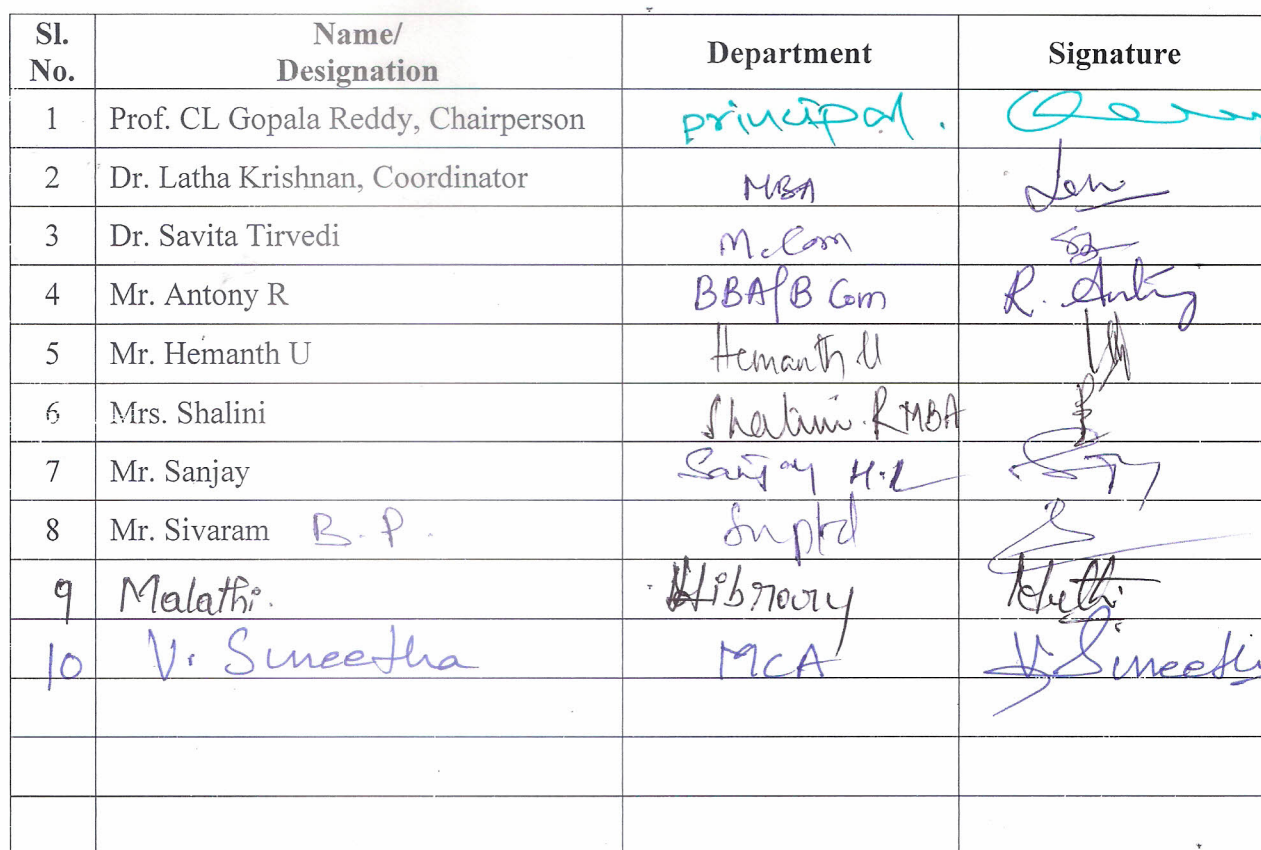 Sl. No. Name/ Designation Department Signature
1 Prof. CL Gopala Reddy, Chairperson principal.
2 Dr. Latha Krishnan, Coordinator MBA
3 Dr. Savita Tirvedi M.Com
4 Mr. Antony R BBA/B Com R. Antony
5 Mr. Hemanth U Hemanth U
6 Mrs. Shalini Shalini. R MBA
7 Mr. Sanjay Sanjay H.L
8 Mr. Sivaram B.P. Suptd
9 Malathi. Library
10 V. Suneetha MCA V. Suneeth